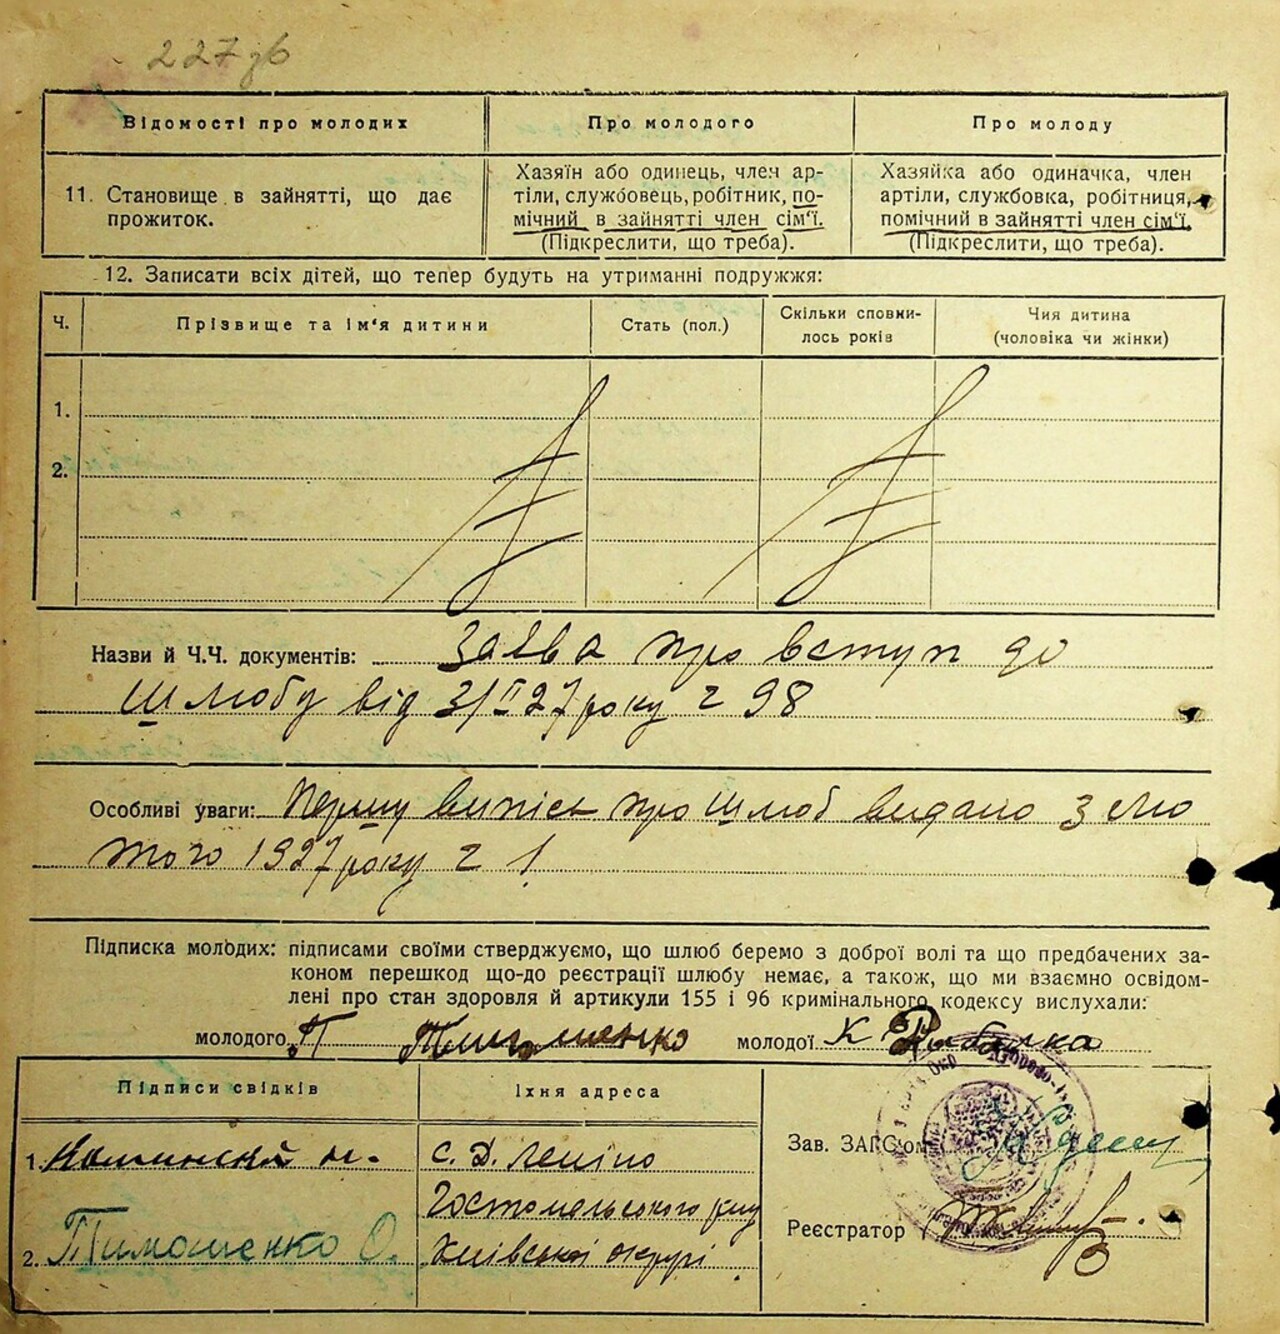 227 зв
Відомості про молодих
Про молодого
Про молоду
11. Становище в зайнятті, що дає
прожиток.
Хазяїн або одинець, член ар-
тіли, службовець, робітник, по-
мічний в зайнятті член сім'ї.
(Підкреслити, що треба).
Хазяйка або одиначка, член
артіли, службовка, робітниця,
помічний в зайнятті член сім'ї.
(Підкреслити, що треба).
12. Записати всіх дітей, що тепер будуть на утриманні подружжя:
Ч.
Прізвище та ім'я дитини
Стать (пол.)
Скільки сповни-
лось років
Чия дитина
(чоловіка чи жінки)
1.
2.
Назви й Ч.Ч. документів: Заява про вступ до
шлюбу від 3/II 27 року г 98
Особливі уваги: Першу випись про шлюб видано 3 лю
того 1927 року г 1
Підписка молодих: підписами своїми стверджуємо, що шлюб беремо з доброї волі та що предбачених за-
коном перешкод що-до реєстрації шлюбу немає, а також, що ми взаємно освідом-
лені про стан здоровля й артикули 155 і 96 кримінального кодексу вислухали:
молодого П Тимошенко молодої К Рибалка
Підписи свідків
Їхня адреса
1.
с.
Гостомельського р
2. Тимошенко О.
Київської округи
Зав. ЗАГС'ом
Реєстратор